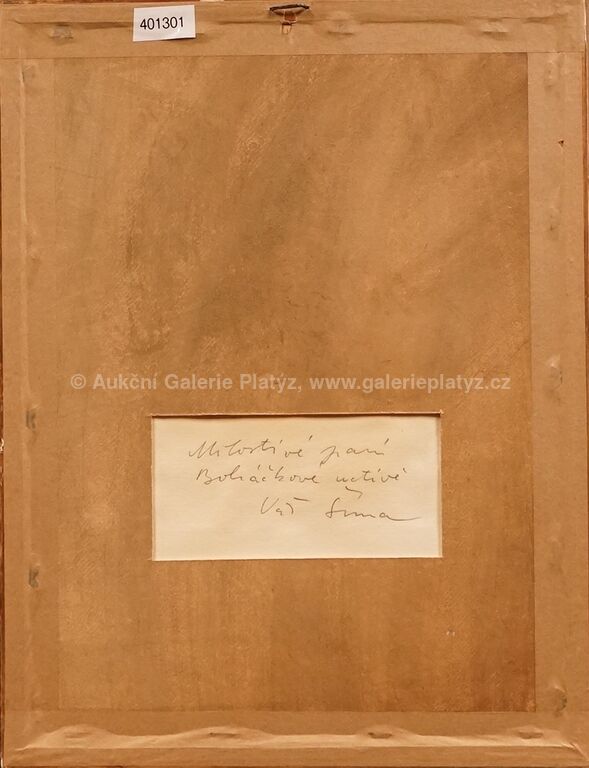 401301
© Aukční Galerie Platýz, www.galerieplatyz.cz
Milostivé paní
Boháčkové uctivě
Váš Šíma